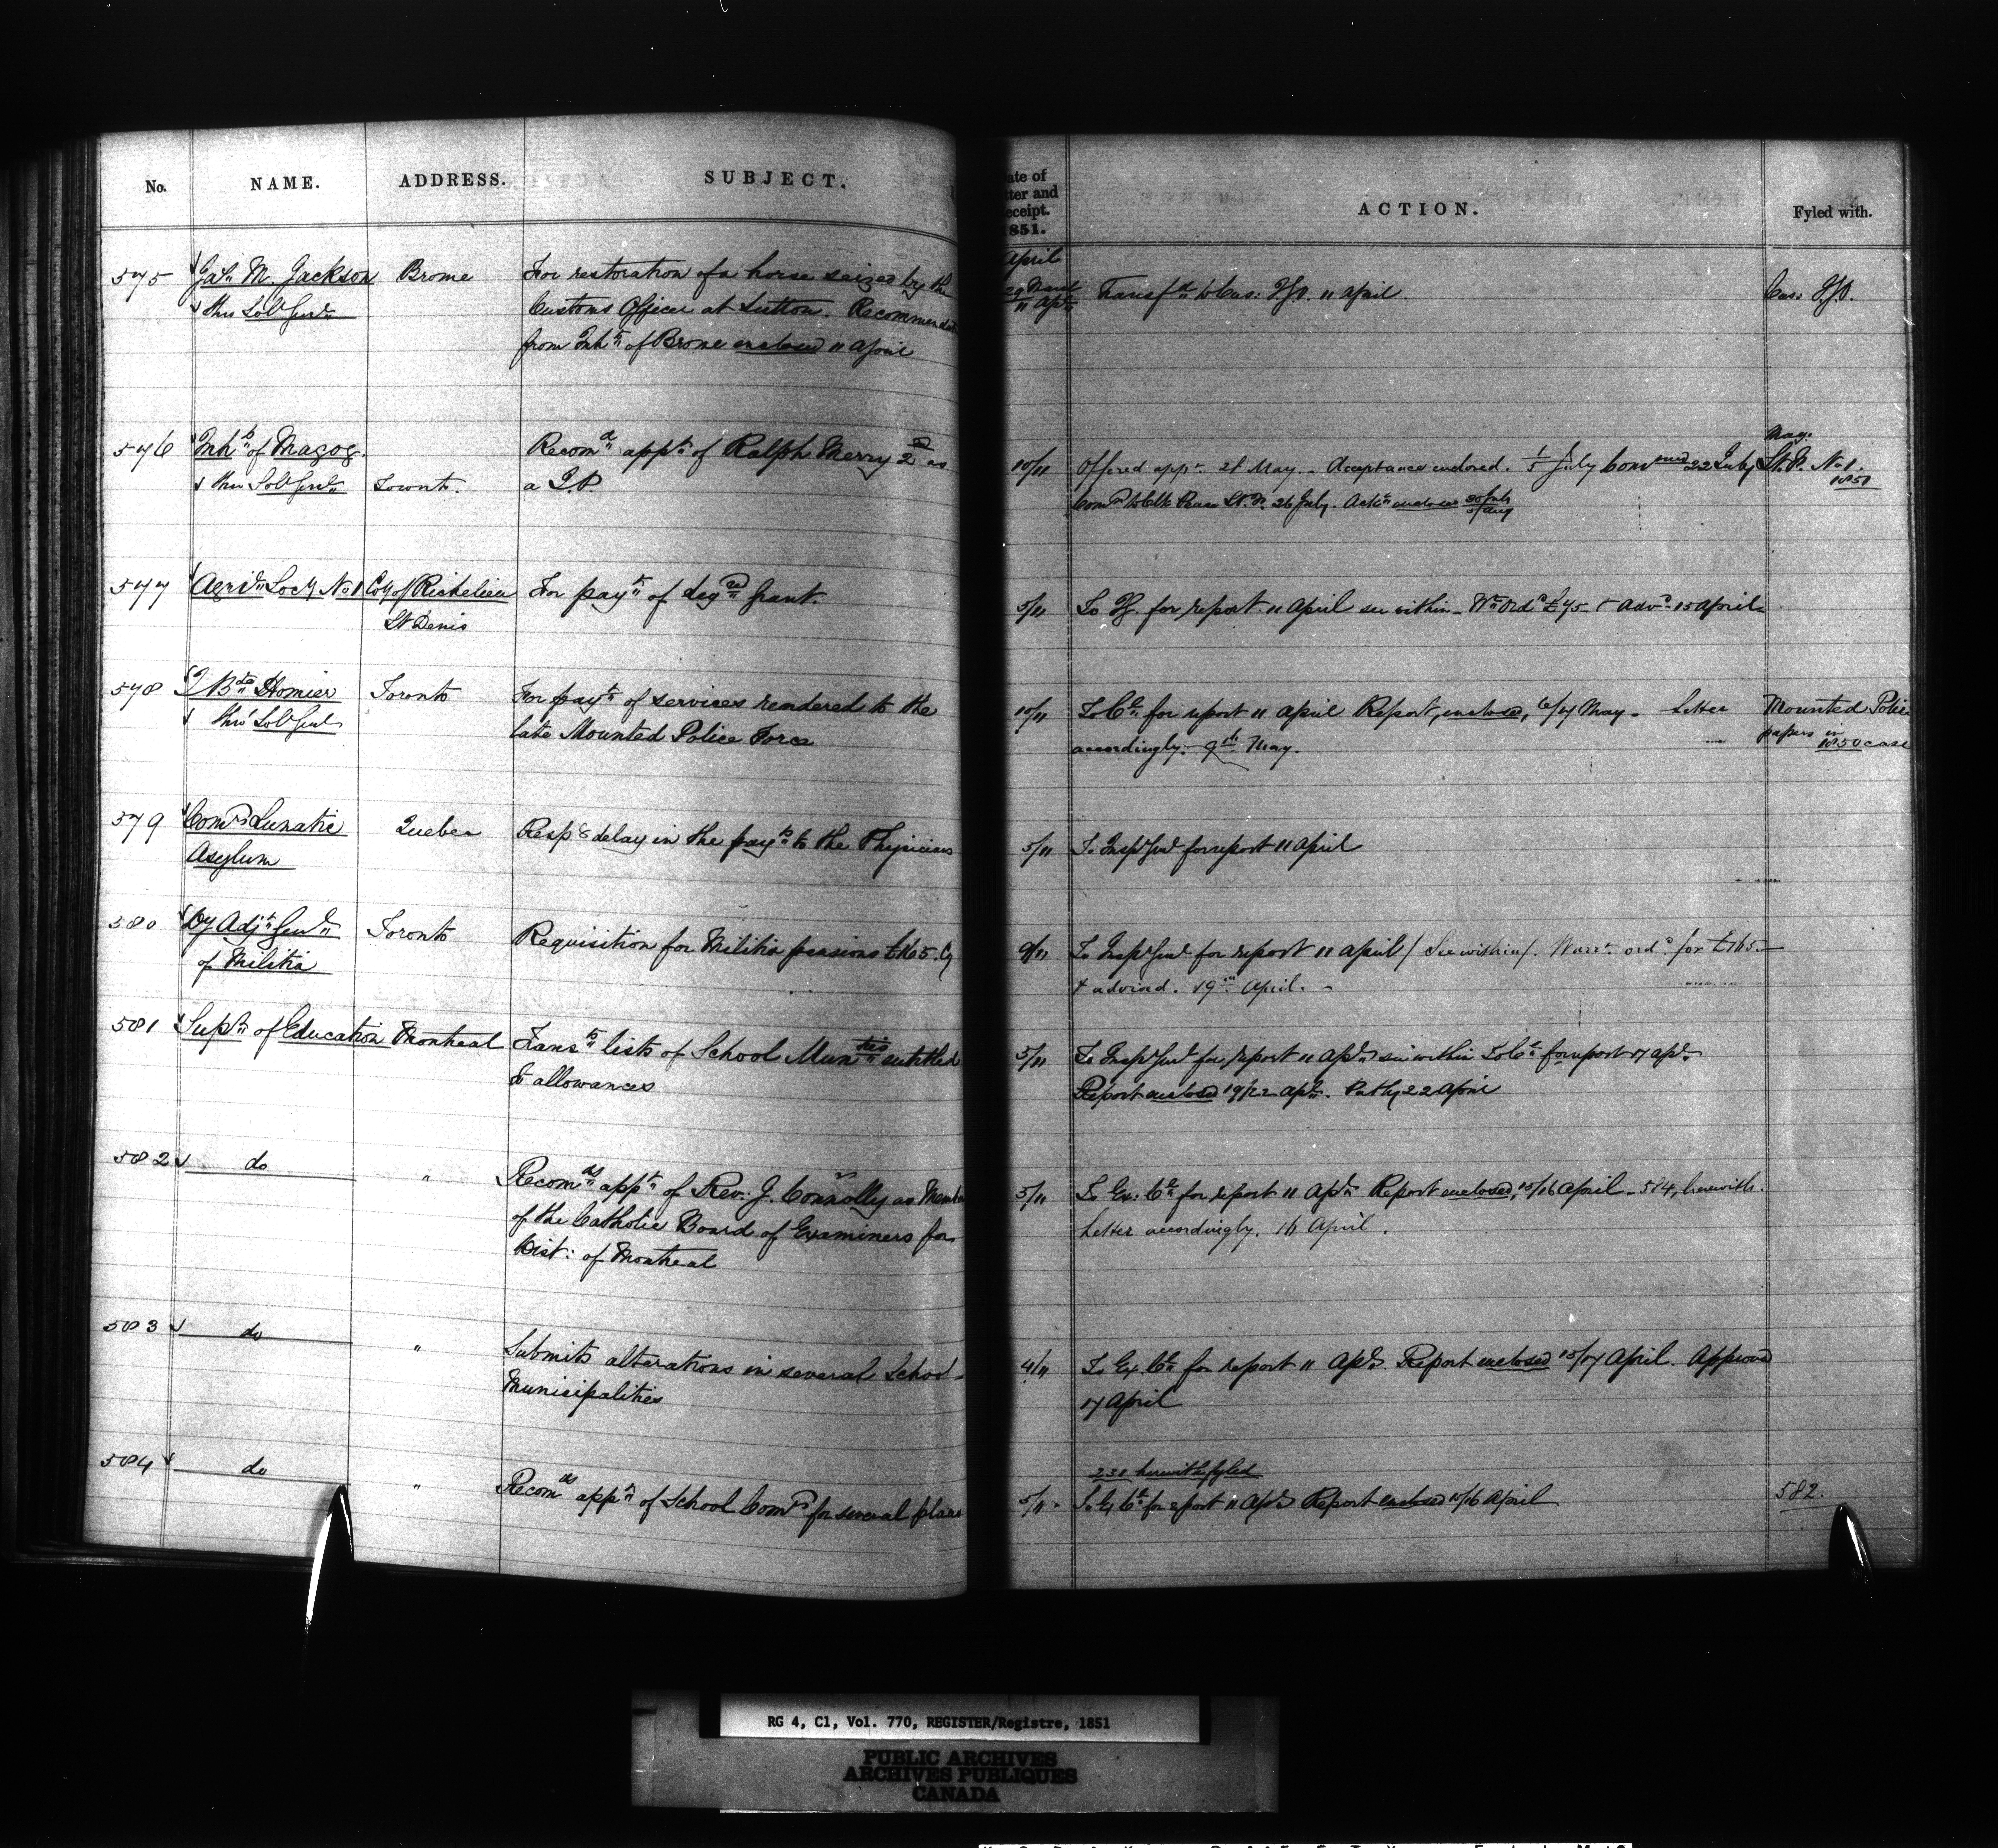 No. NAME. ADDRESS. SUBJECT.
575 Jas. M. Jackson Brome For restoration of a horse seized by the
thro Solr Genl Customs Officer at Sutton. Recommendn
from Inhts of Brome enclosed 11 April
576 Inhts of Magog. Recomd appt of Ralph Merry 2nd as
thro Solr Genl Toronto. a J.P.
577 Agrl Socy No 1 Cty of Richelieu For payt of leg grant.
St Denis
578 J Bte Homier Toronto For payt of services rendered to the
thro' Solr Genl late Mounted Police Force
579 Comrs Lunatic Quebec Respg delay in the payts to the Physicians
Asylum
580 Dy Adjt Genl Toronto Requisition for Militia pensions £165. Cy
of Militia
581 Supt of Education Montreal Transts lists of School Munties entitled
to allowances
582 do " Recomds appt of Rev: J. Connolly as Member
of the Catholic Board of Examiners for
Dist: of Montreal
583 do " Submits alterations in several School
Municipalities
584 do " Recomds appt of School Comrs for several places
ate of
ter and
eceipt.
1851.
ACTION. Fyled with.
April
29 March
11 Apl Transfd to Cus: 11 April. Cus:
May.
10/11 Offered appt 21 May. Acceptance enclosed. July 22 July St. F. No 1.
1851
Comn to Clk Peace St. F. 26 July. Ackt enclosed 30 July
Aug
5/11 To for report 11 April see within Wt ordd £75 & advd 15 April
10/11 To Cl for report 11 April Report, enclosed, 6/7 May. Letter Mounted Police
accordingly. 9th May. papers in
1850 case
5/11 To Inspr Genl for report 11 April
9/11 To Inspr Genl for report 11 April / See within /. Warrt ordd for £165
& advised. 19th April.
5/11 To Inspr Genl for report 11 Apl see within To Cl for report 17 Apl
Report enclosed 19/22 Apl. 22 April
5/11 To Ex. Cl for report 11 Apl Report enclosed, 15/16 April 584, herewith.
Letter accordingly. April.
4/11 To Ex. Cl for report 11 Apl. Report enclosed 15/17 April. Approved
17 April
231 herewith fyled
5/11 To Ex Cl for report 11 Apl Report enclosed 15/16 April 582.
RG 4, C1, Vol. 770, REGISTER/Registre, 1851
PUBLIC ARCHIVES
ARCHIVES PUBLIQUES
CANADA